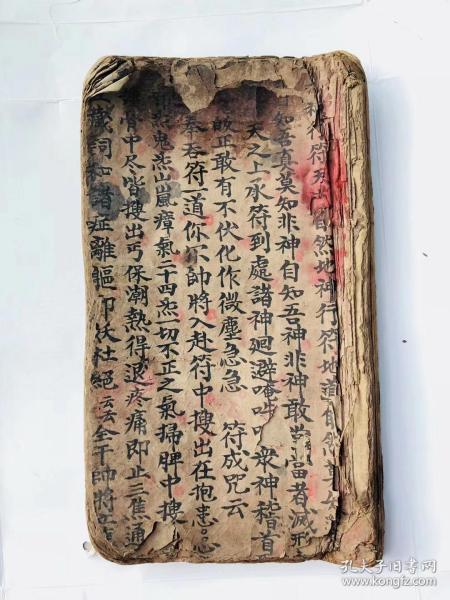 符天自然地神行符地道自然
知吾真莫知非神自知吾神非神敢當吾者滅形
天之上承符到處諸神廻避唵吽吽衆神稽首
故正敢有不伏化作微塵急急 符成咒云
奉吞符一道你不帥將入赴符中搜出在抱患心
鬼炁山嵐瘴氣二十四炁一切不正之氣掃脾中搜
骨中尽皆搜出丐保潮熱得退疼痛即止三焦通
詞和諸症離軀即妖杜絕云云全干帥將
孔夫子旧书网
www.kongfz.com